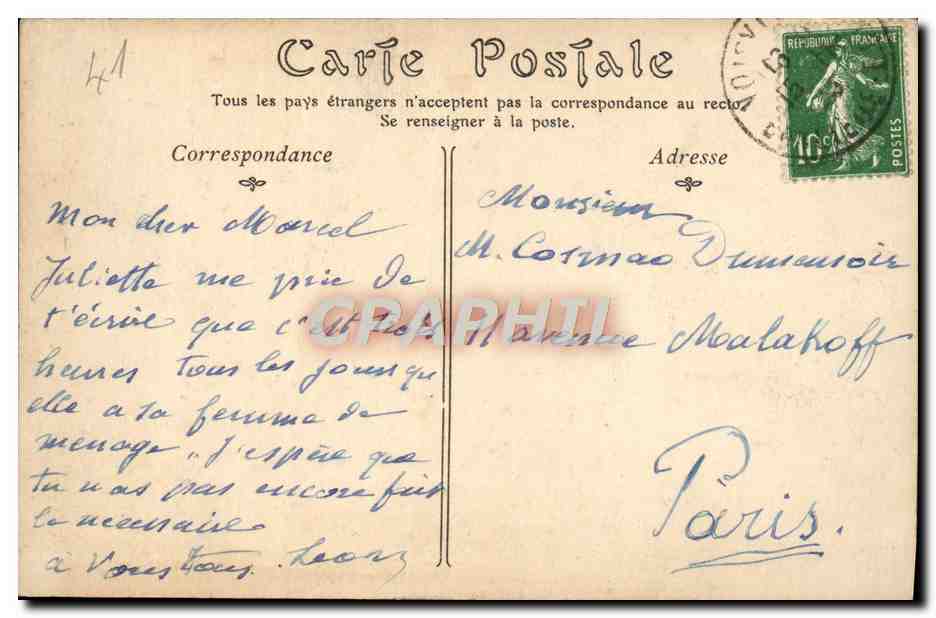 41
Carte Postale
Tous les pays étrangers n'acceptent pas la correspondance au recto.
Se renseigner à la poste.
RÉPUBLIQUE FRANÇAISE
10c
POSTES
Correspondance
Mon cher Marcel
Juliette me prie de
t'écrire que c'est trois
heures tous les jours qu'
elle a sa femme de
menage. J'espère que
tu n'as pas encore fait
le necessaire
à Vous tous. Leon
CPAPHIL
Adresse
Monsieur
M. Cosmao Dumenoir
avenue Malakoff
Paris.